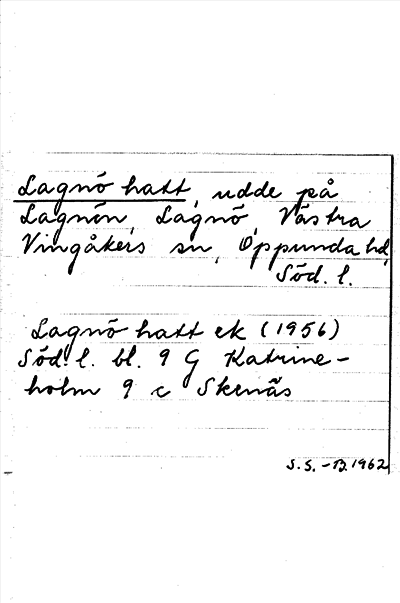 Lagnö hatt, udde på
Lagnön, Lagnö, Västra
Vingåkers sn, Oppunda hd,
Söd. l.
Lagnö hatt ek (1956)
Söd. l. bl. 9 G Katrine-
holm 9 c Skenäs
S.S. - B. 1962